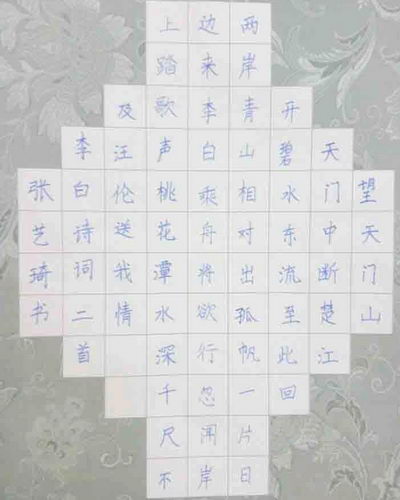 望天门山
天门中断楚江
开碧水东流至此回
两岸青山相对出孤帆一片日
边来李白乘舟将欲行忽闻岸
上踏歌声桃花潭水深千尺不
及汪伦送我情
李白诗词二首
张艺琦书